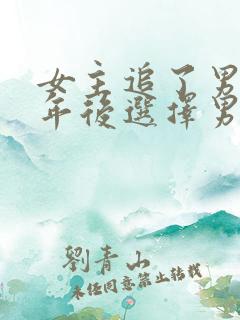 女主追了男
年後選擇男
劉青山
未经同意禁止转载